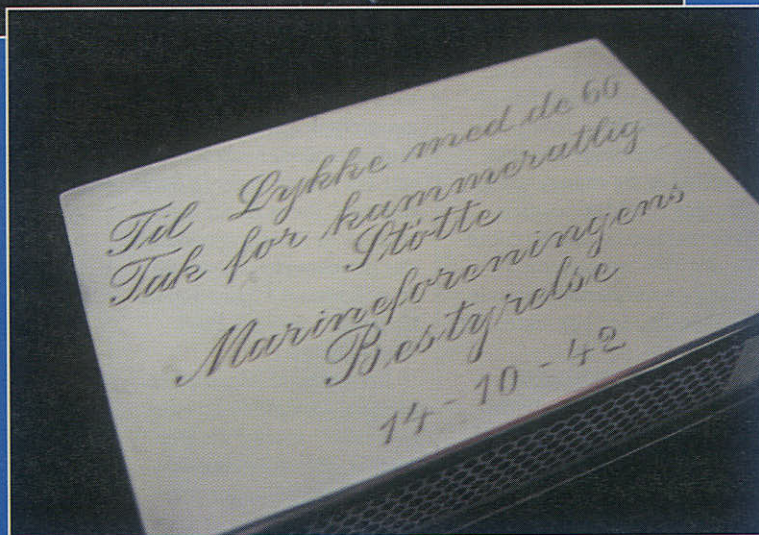 Til Lykke med de 60
Tak for kammeratlig
Støtte
Marineforeningens
Bestyrelse
14-10-42